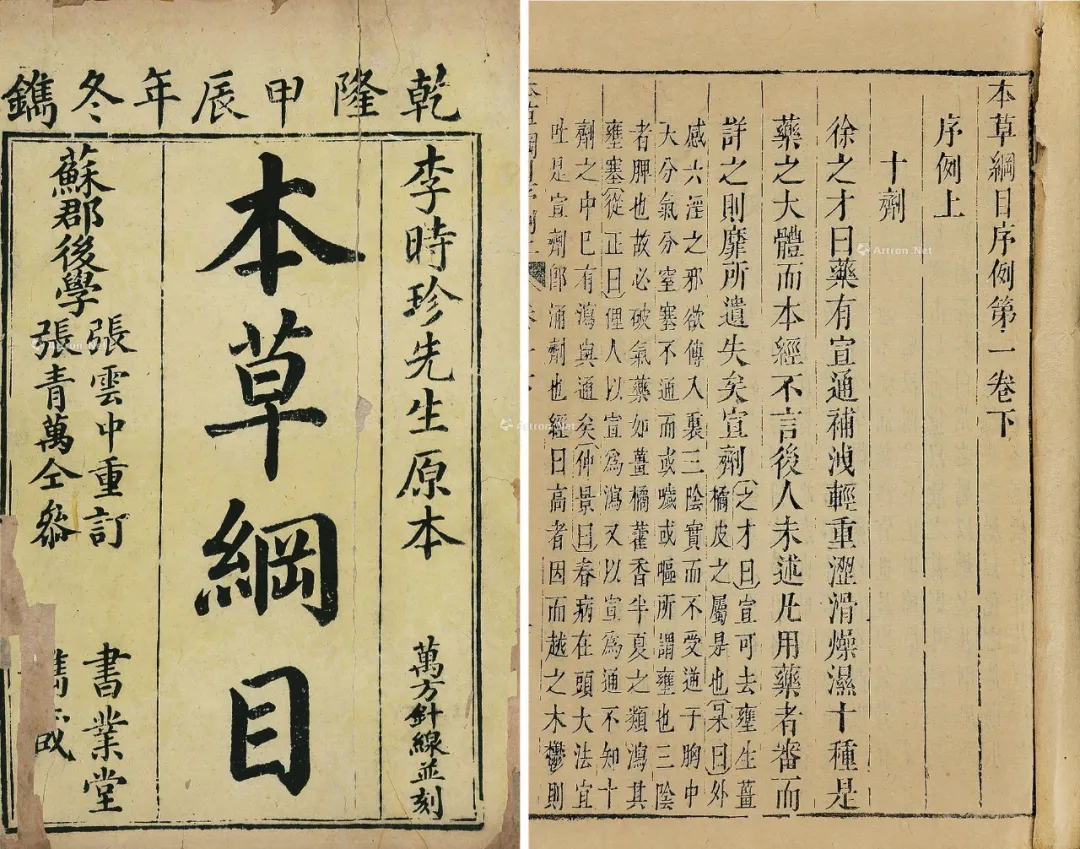 乾隆甲辰年冬鐫
李時珍先生原本
萬方針線並刻
本草綱目
蘇郡後學
張雲中重訂
張青萬仝參
書業堂
本草綱目序例第一卷下
序例上
十劑
徐之才曰藥有宣通補洩輕重澀滑燥濕十種是
藥之大體而本經不言後人未述凡用藥者審而
詳之則靡所遺失矣宣劑
之才曰宣可去壅生薑
橘皮之屬是也杲曰外
感六淫之邪欲傳入裏三陰實而不受逆于胸中
天分氣分窒塞不通而或噦或嘔所謂壅也三陰
者脾也故必破氣藥如薑橘藿香半夏之類瀉其
壅塞從正曰俚人以宣爲瀉又以宣爲通不知十
劑之中已有瀉與通矣仲景曰春病在頭大法宜
吐是宣劑卽涌劑也經曰高者因而越之木鬱則
Artron.Net
Artron.Net